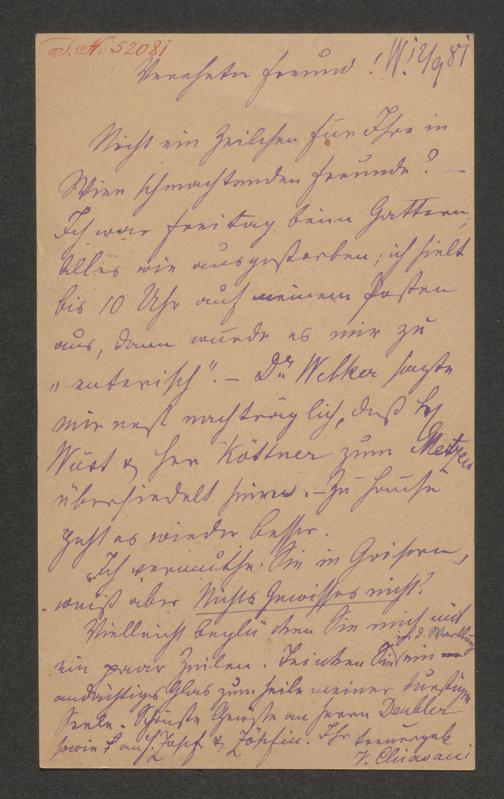 I. N. 52081
Verehrter Freund! W. 2/9 81
Nicht ein Zeilchen für Ihre in
Wien schmachtenden Freunde? –
Ich war Freitag beim Gattern,
Alles wie ausgestorben; ich hielt
bis 10 Uhr auf meinem Posten
aus, dann wurde es mir zu
„enterisch". – Dr. Welker sagte
mir erst nachträglich, daß
Wüst & Herr Köttner zum Metzger
übersiedelt seien. – Zu Hause
geht es wieder besser.
Ich vermuthe Sie in Goisern,
weiß aber Nichts Gewisses nicht.
Vielleicht beglücken Sie mich mit
ein paar Zeilen. Trinken Sie ein
andächtiges Glas zum Heile meiner durstigen
Seele. Schönste Grüsse an Herrn Deubler
sowie auch Josef & Josefin. Ihr treuergeb
V. Chiavacci